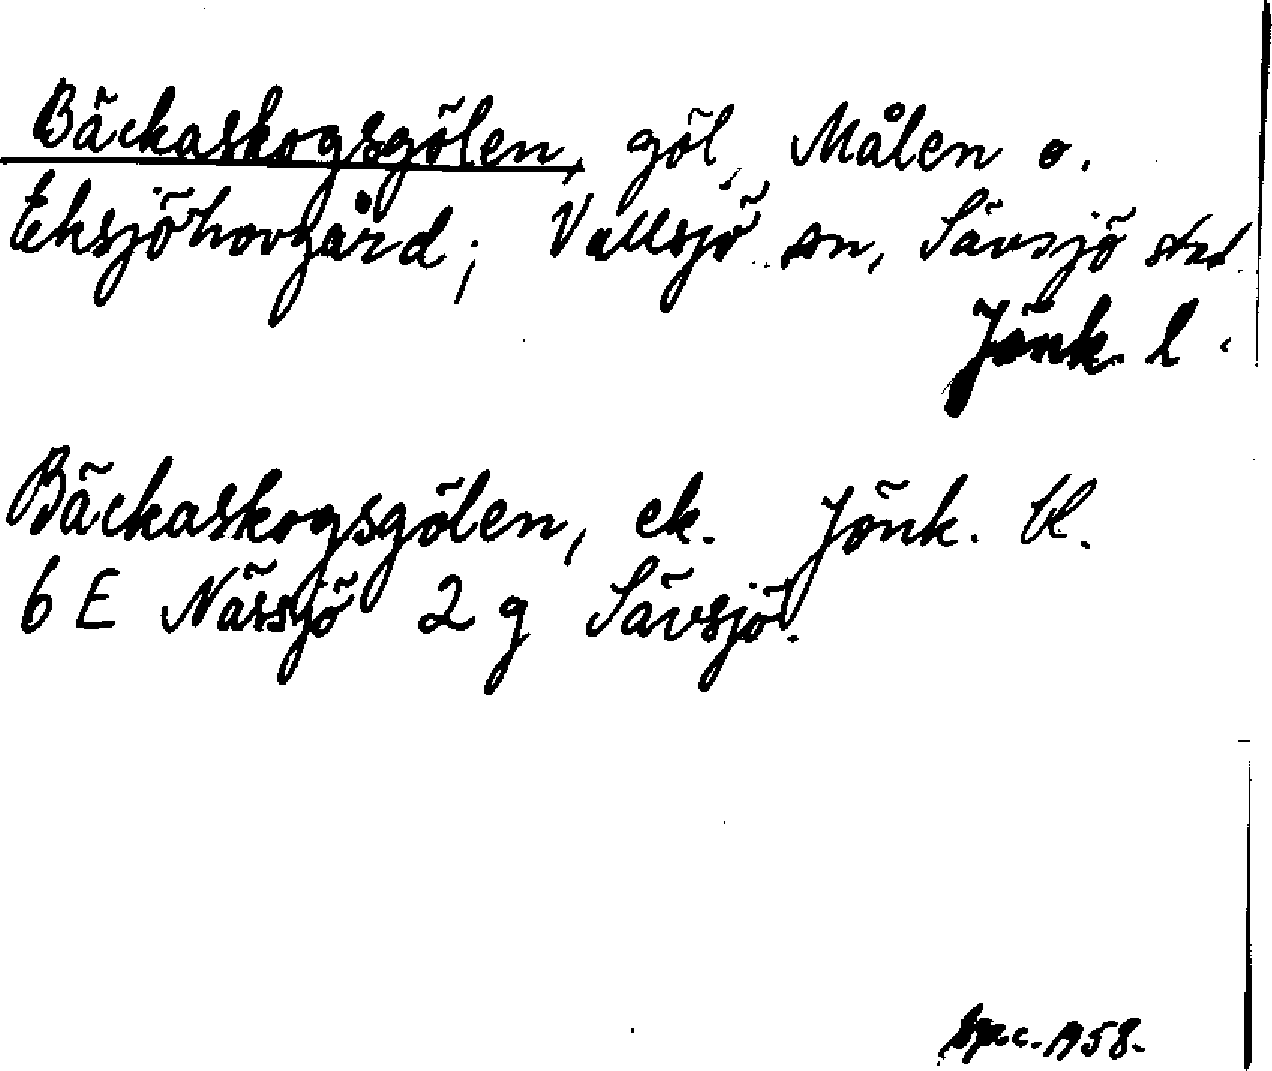 Bäckaskogsgölen, göl, Målen o.
Eksjöhovgård; Vallsjö sn, Sävsjö stad
Jönk. l.
Bäckaskogsgölen, ek. Jönk. bl.
6 E Nässjö 2 g Sävsjö.
1958.